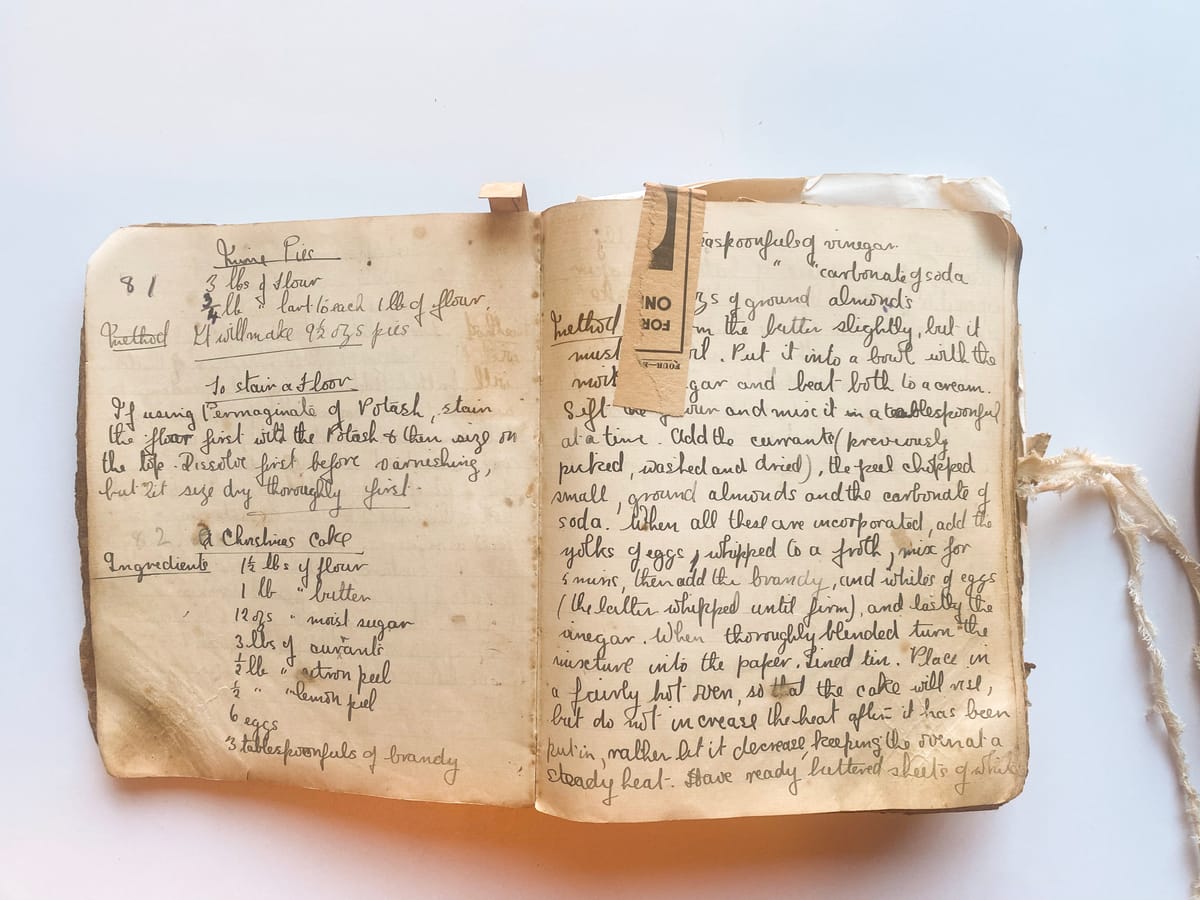 Pies
81
3 lbs of flour
3/4 lb " lard to each 1 lb of flour
Method It will make 9½ ozs pies
To stain a Floor
If using Permaginate of Potash, stain
the floor first with the Potash & then size on
the top. Dissolve first before varnishing,
but let size dry thoroughly first.
82 A Christmas Cake
Ingredients 1½ lbs of flour
1 lb " butter
12 ozs " moist sugar
3 lbs of currants
½ lb " citron peel
½ " " lemon peel
6 eggs
3 tablespoonfuls of brandy
teaspoonfuls of vinegar
" " carbonate of soda
ozs of ground almonds
Method the butter slightly, but it
must Put it into a bowl with the
and beat both to a cream.
Sift and mix it in a tablespoonful
at a time. Add the currants (previously
picked, washed and dried), the peel chopped
small, ground almonds and the carbonate of
soda. When all these are incorporated, add the
yolks of eggs, whipped to a froth, mix for
5 mins, then add the brandy, and whites of eggs
(the latter whipped until firm), and lastly the
vinegar. When thoroughly blended turn the
mixture into the paper. Lined tin. Place in
a fairly hot oven, so that the cake will rise,
but do not increase the heat after it has been
put in, rather let it decrease, keeping the oven at a
steady heat. Have ready buttered sheets of white
FOR
ON